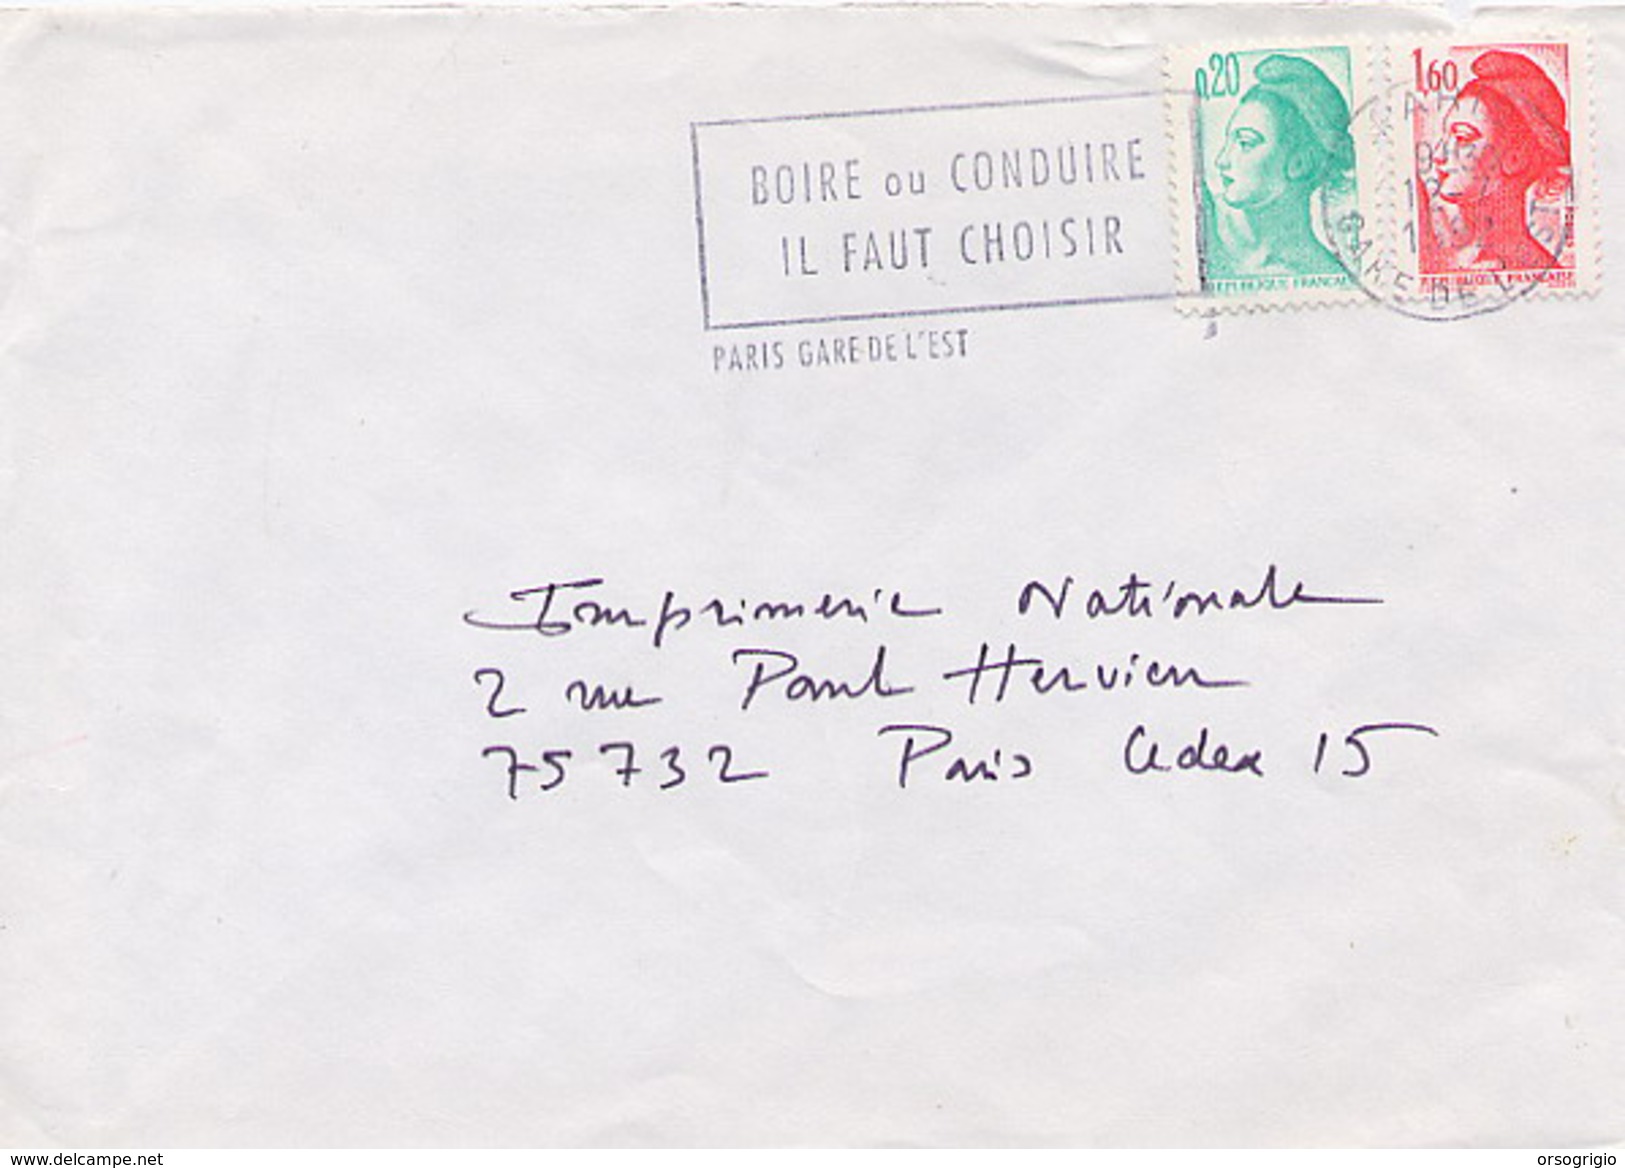 0,20
1,60
BOIRE ou CONDUIRE
IL FAUT CHOISIR
PARIS GARE DE L'EST
REPUBLIQUE FRANCAISE
GARE DE L'EST
Imprimerie Nationale
2 rue Paul Hervieu
75732 Paris Cedex 15
www.delcampe.net
orsogrigio